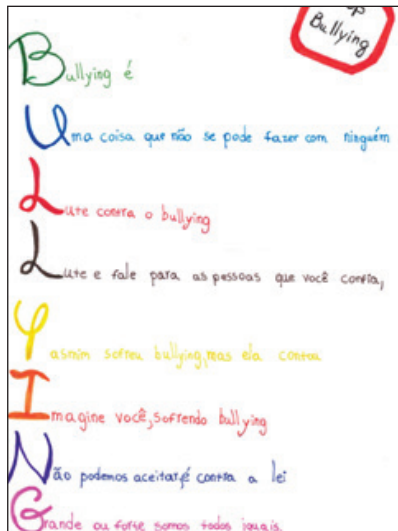 op
Bullying
Bullying é
Uma coisa que não se pode fazer com ninguém
Lute contra o bullying
Lute e fale para as pessoas que você confia,
Yasmim sofreu bullying, mas ela contou
Imagine você, sofrendo bullying
Não podemos aceitar, é contra a lei
Grande ou forte somos todos iguais.